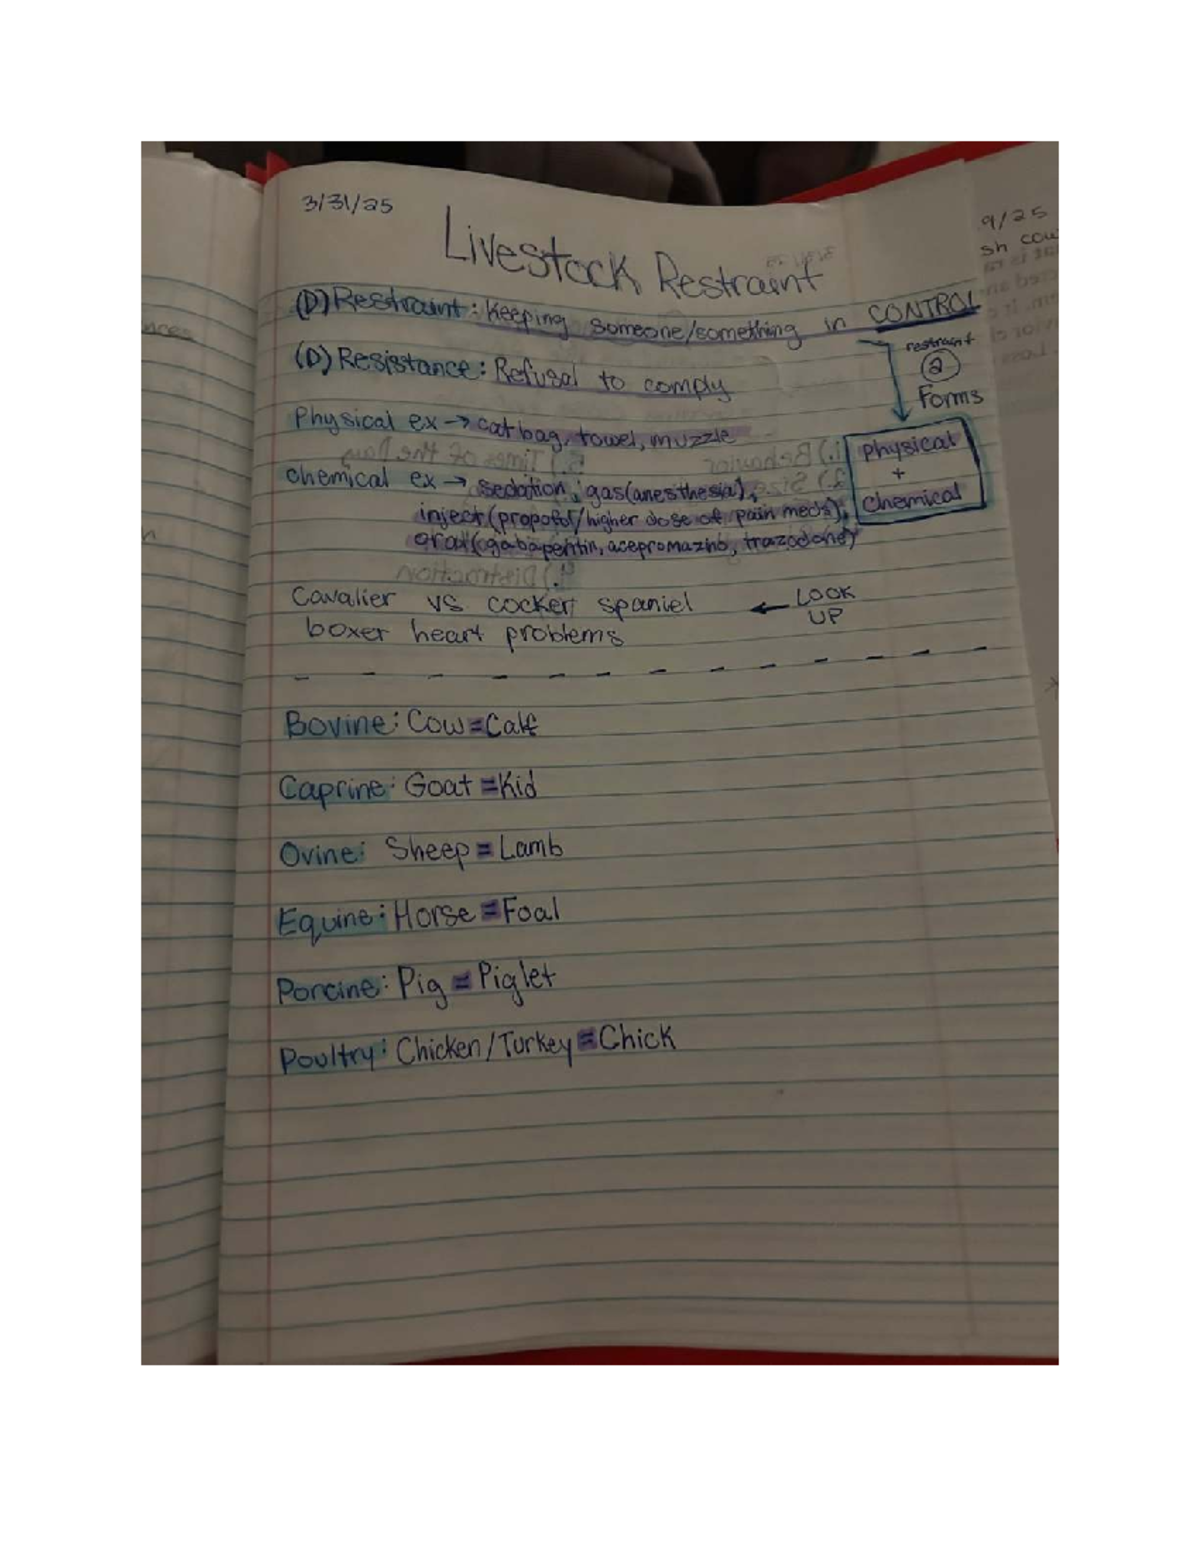 3/31/25
Livestock Restraint
(D) Restraint: Keeping someone/something in CONTROL
restraint
2
Forms
(D) Resistance: Refusal to comply
Physical ex → cat bag, towel, muzzle
physical
+
chemical
chemical ex → sedation, gas(anesthesia),
inject(propofol/higher dose of pain meds),
oral(gabapentin, acepromazine, trazodone)
Cavalier vs cocker spaniel ← LOOK
UP
boxer heart problems
Bovine: Cow = Calf
Caprine: Goat = Kid
Ovine: Sheep = Lamb
Equine: Horse = Foal
Porcine: Pig = Piglet
Poultry: Chicken/Turkey = Chick
9/25
sh cow